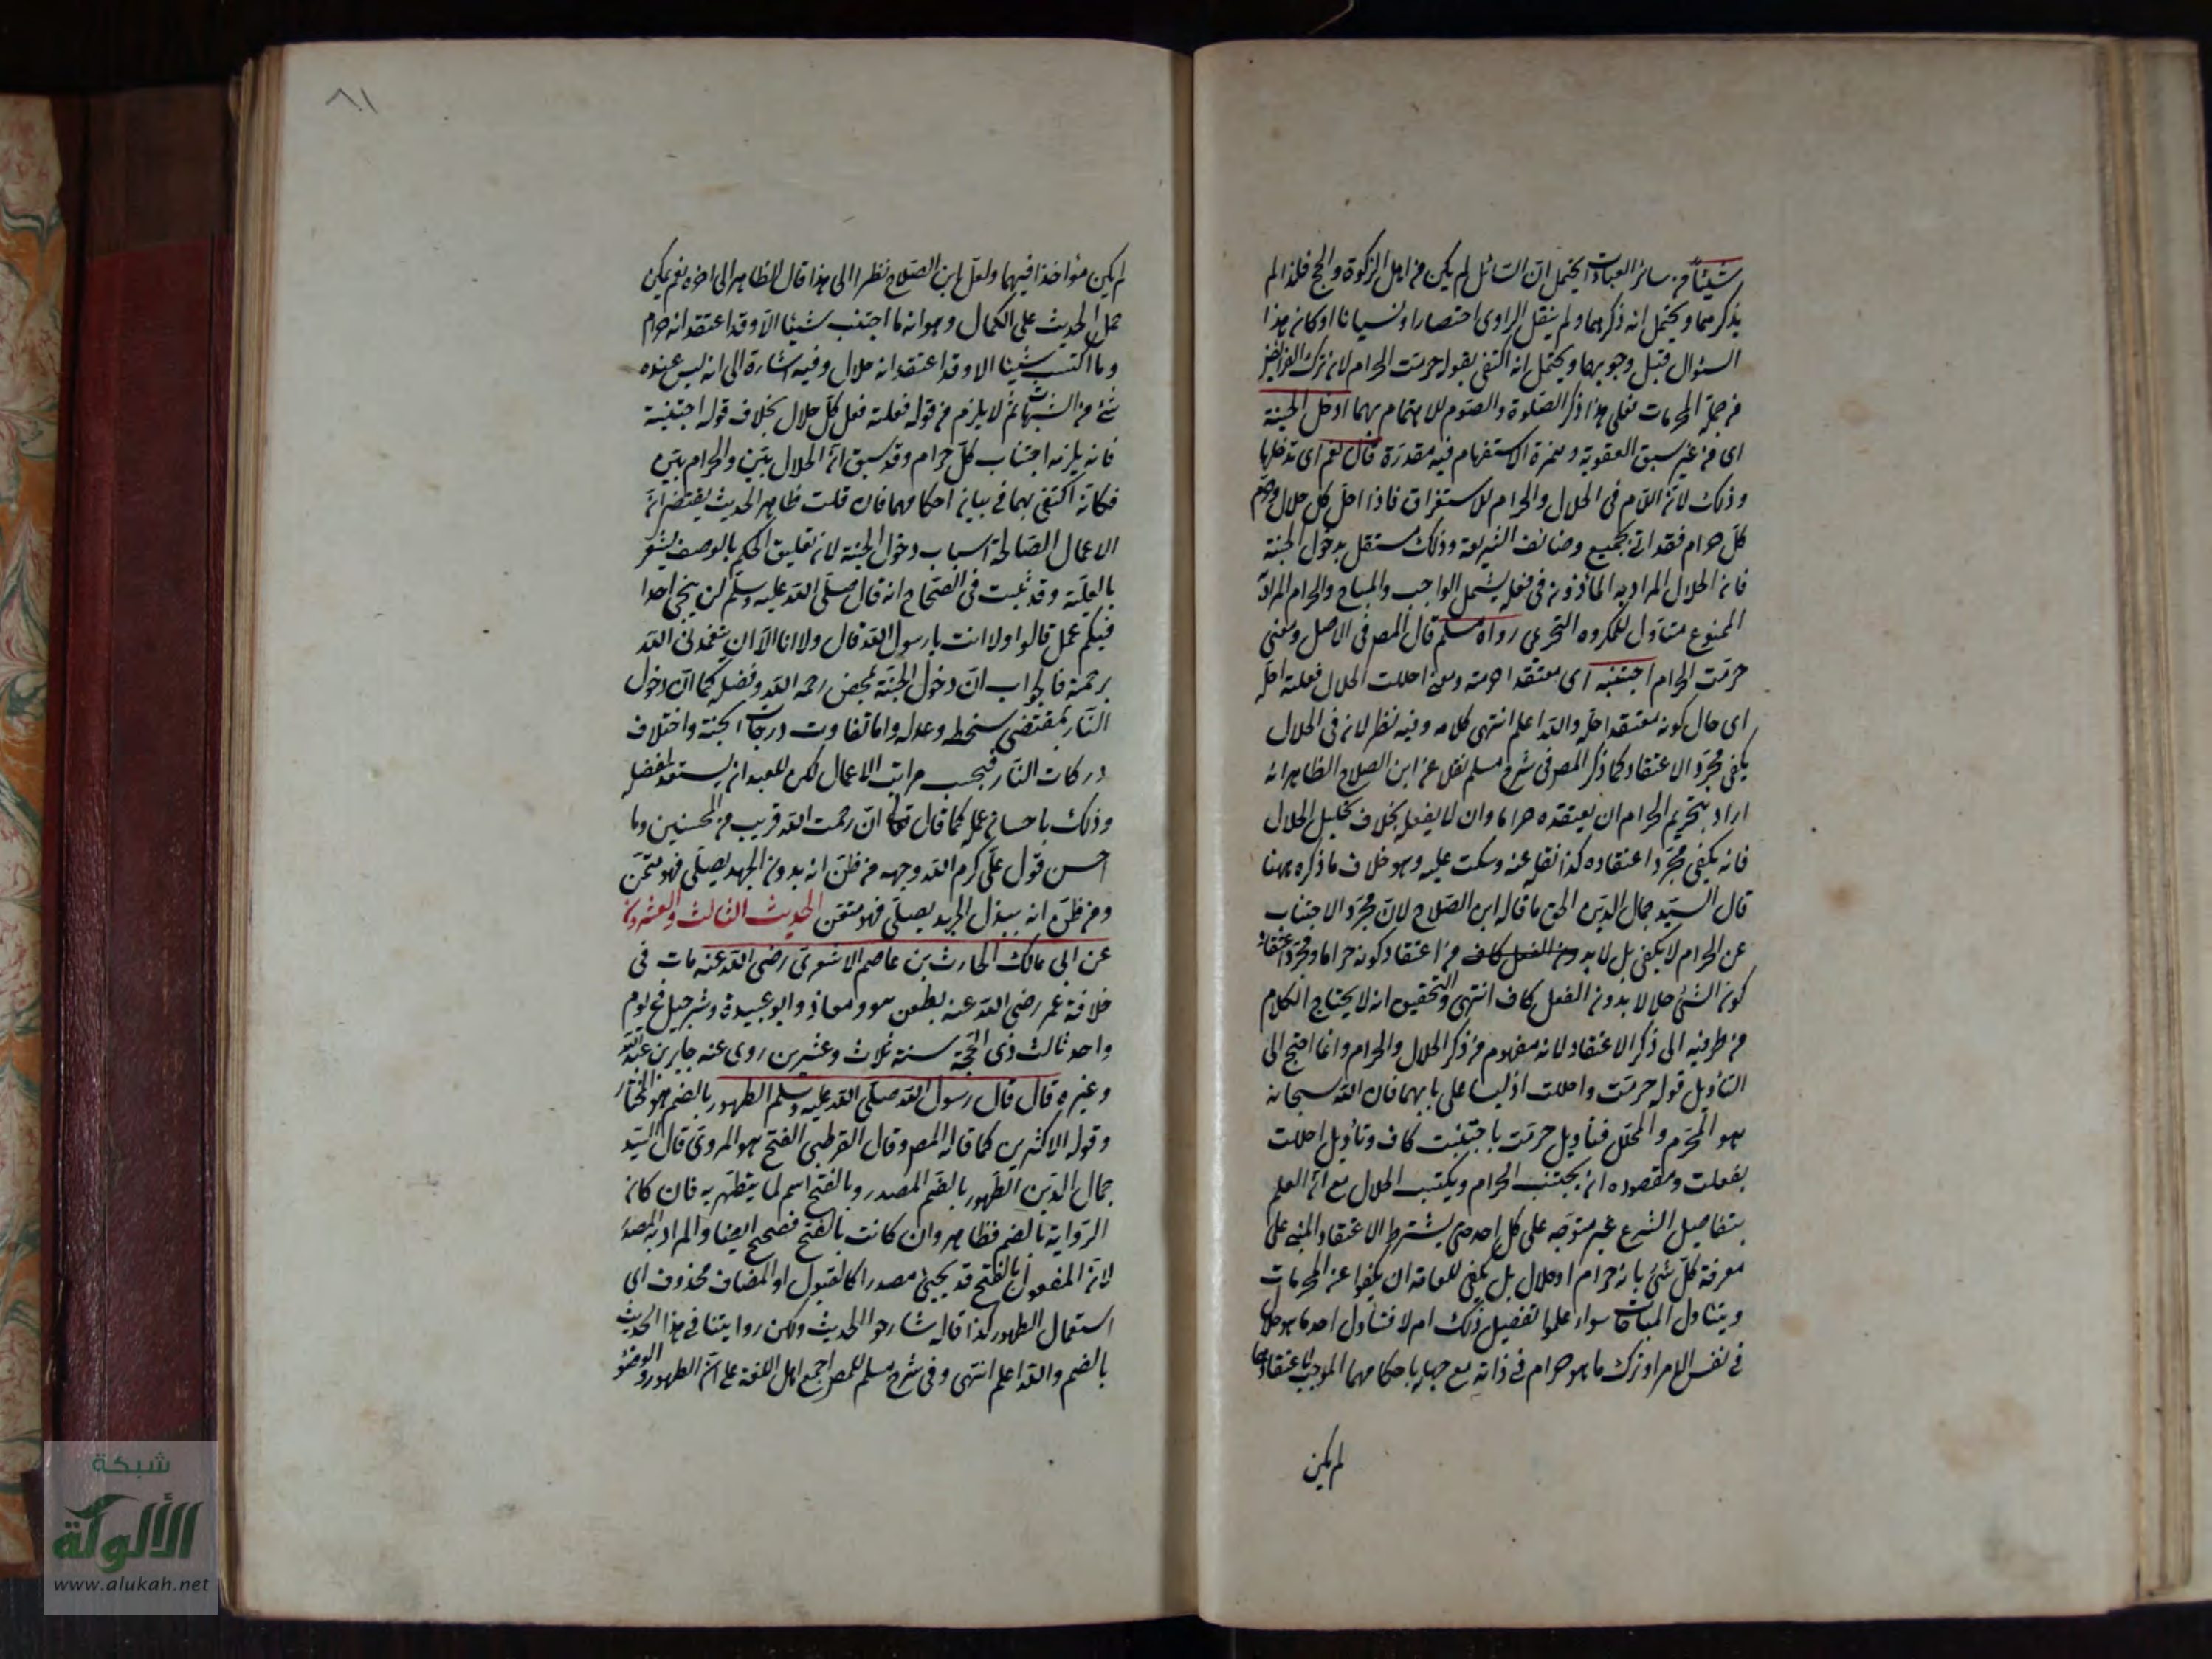 شيئا من سائر العبادات يحتمل ان السائل لم يكن من اهل الزكوة والحج فلذا لم
يذكرهما ويحتمل انه ذكرهما ولم ينقل الراوى اختصارا او نسيانا او كان هذا
السؤال قبل وجوبهما ويحتمل انه اكتفى بقوله حرمت الحرام لان ترك الفرائض
من جملة المحرمات فعلى هذا ذكر الصلوة والصوم للاهتمام بهما ادخل الجنة
اى من غير سبق العقوبة وهمزة الاستفهام فيه مقدرة قال نعم اى تدخلها
وذلك لان اللام فى الحلال والحرام للاستغراق فاذا احل كل حلال وحرم
كل حرام فقد اتى بجميع وضائف الشريعة وذلك مستقل بدخول الجنة
فان الحلال المراد به المأذون فى فعله يشمل الواجب والمباح والحرام المراد
الممنوع متناول للمكروه التحرى رواه مسلم قال المص فى الاصل ومعنى
حرمت الحرام اجتنبته اى معتقدا حرمته ومعنى احللت الحلال فعلته احله
اى حال كونه معتقدا حله والله اعلم انتهى كلامه وفيه نظر لان فى الحلال
يكفى مجرد الاعتقاد كما ذكر المص فى شرح مسلم نقل عن ابن الصلاح الظاهر انه
اراد بتحريم الحرام ان يعتقده حراما وان لا يفعله بخلاف تحليل الحلال
فانه يكفى مجرد اعتقاده كذا نقله عنه وسكت عليه وهو خلاف ما ذكره ههنا
قال السيد جمال الدين الحق ما قاله ابن الصلاح لان مجرد الاجتناب
عن الحرام لا يكفى بل لا بد من اعتقاد كونه حراما ومجرد اعتقاد
كون الشئ حلالا بدون الفعل كاف انتهى والتحقيق انه لا يحتاج الكلام
من طرفيه الى ذكر الاعتقاد لانه مفهوم من ذكر الحلال والحرام وانما احتج الى
التأويل قوله حرمت واحللت اذ ليسا على بابهما فان الله سبحانه
هو المحرم والمحلل فتأويل حرمت باجتنبت كاف وتأويل احللت
بفعلت ومقصوده ان يجتنب الحرام ويكتسب الحلال مع ان العلم
بتفاصيل الشرع غير متوجه على كل احد حتى يشترط الاعتقاد المبنى على
معرفة كل شئ بانه حرام او حلال بل يكفى للعامة ان يكفوا عن المحرمات
ويتناول المباحات سواء علموا تفصيل ذلك ام لا فتناول احد ما هو حلال
فى نفس الامر او ترك ما هو حرام فى ذاته مع جهله باحكامهما الموجب لاعتقادهما
لم يكن
٨١
لم يكن مؤاخذا فيهما ولعل ابن الصلاح نظرا الى هذا قال الظاهر الى اخره نعم يمكن
حمل الحديث على الكمال وهو انه ما اجتنب شيئا الا وقد اعتقد انه حرام
وما اكتسب شيئا الا وقد اعتقد انه حلال وفيه اشارة الى انه ليس عنده
شئ من الشبهات ثم لا يلزم من قوله فعلته فعل كل حلال بخلاف قوله اجتنبته
فانه يلزمه اجتناب كل حرام وقد سبق ان الحلال بين والحرام بين
فكانه اكتفى بهما فى بيان احكامهما فان قلت ظاهر الحديث يقتضى ان
الاعمال الصالحة اسباب دخول الجنة لان تعليق الحكم بالوصف يشعر
بالعلية وقد ثبت فى الصحاح انه قال صلى الله عليه وسلم لن ينجى احدا
منكم عمل قالوا ولا انت يا رسول الله قال ولا انا الا ان يتغمدنى الله
برحمته فالجواب ان دخول الجنة لمحض رحمه الله وفضله كما ان دخول
النار بمقتضى سخطه وعدله واما تفاوت درجات الجنة واختلاف
دركات النار فبحسب مراتب الاعمال لكن للعبد ان يستعد لفضله
وذلك باحسان عمله كما قال تعالى ان رحمت الله قريب من المحسنين وما
احسن قول على كرم الله وجهه من ظن انه بدون الجهد يصلى فهو متمن
ومن ظن انه ببذل الجهد يصلى فهو متعن الحديث الثالث والعشرون
عن ابى مالك الحارث بن عاصم الاشعرى رضى الله عنه مات فى
خلافة عمر رضى الله عنه بطعن هو ومعاذ وابو عبيدة وشرحبيل فى يوم
واحد ثالث ذى الحجة سنة ثلاث وعشرين روى عنه جابر بن عبد الله
وغيره قال قال رسول الله صلى الله عليه وسلم الطهور بالضم هو المختار
وقوله الاكثرين كما قاله المص وقال القرطبى الفتح هو المروى قال السيد
جمال الدين الطهور بالضم المصدر وبالفتح اسم لما يتطهر به فان كان
الرواية بالضم فظاهر وان كانت بالفتح فصحح ايضا والمراد به المصدر
لان المفعول بالفتح قد يجيئ مصدرا كالقبول او المضاف محذوف اى
استعمال الطهور كذا قاله شارحوا الحديث ولكن روايتنا فى هذا الحديث
بالضم والله اعلم انتهى وفى شرح مسلم للمص اجمع اهل اللغة على ان الطهور والوضؤ
شبكة
الألوكة
www.alukah.net